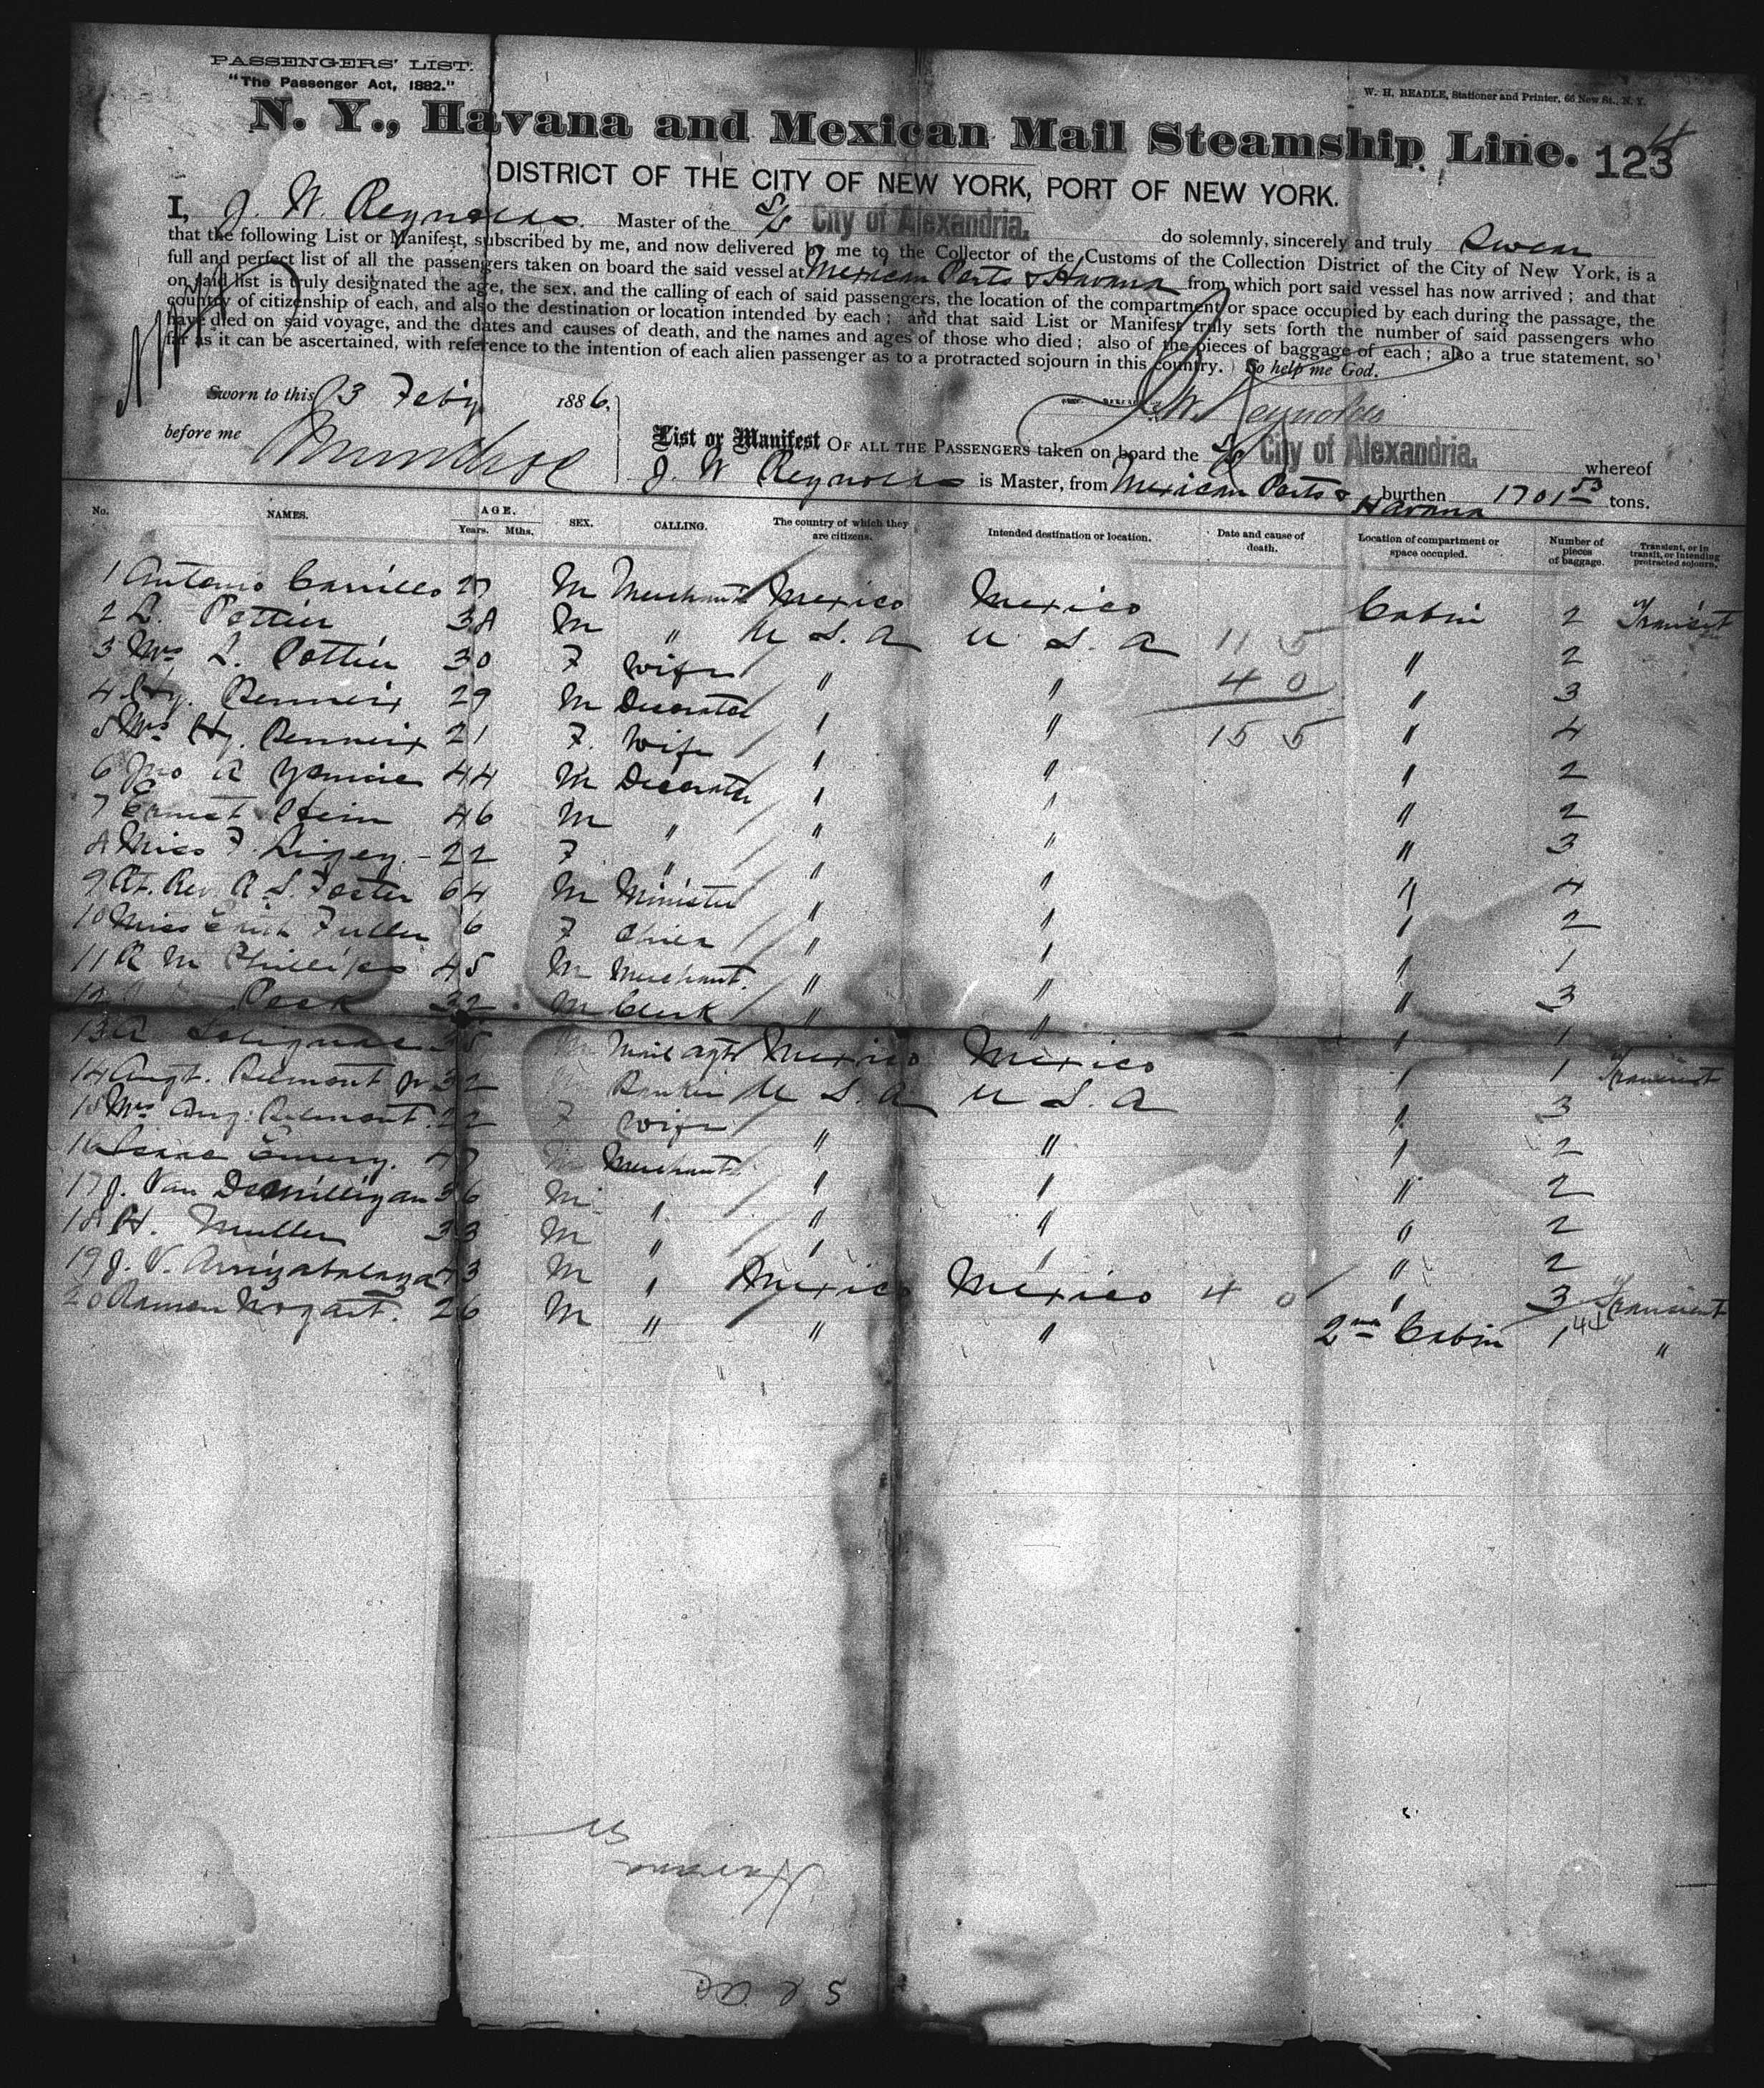 PASSENGERS' LIST.
"The Passenger Act, 1882."
W. H. BEADLE, Stationer and Printer, 66 New St., N. Y.
N. Y., Havana and Mexican Mail Steamship Line. 123
DISTRICT OF THE CITY OF NEW YORK, PORT OF NEW YORK.
I, J. W. Reynolds. Master of the S/S City of Alexandria. do solemnly, sincerely and truly Swear
that the following List or Manifest, subscribed by me, and now delivered by me to the Collector of the Customs of the Collection District of the City of New York, is a
full and perfect list of all the passengers taken on board the said vessel at Mexican Ports & Havana from which port said vessel has now arrived ; and that
on said list is truly designated the age, the sex, and the calling of each of said passengers, the location of the compartment or space occupied by each during the passage, the
country of citizenship of each, and also the destination or location intended by each ; and that said List or Manifest truly sets forth the number of said passengers who
have died on said voyage, and the dates and causes of death, and the names and ages of those who died ; also of the pieces of baggage of each ; also a true statement, so
far as it can be ascertained, with reference to the intention of each alien passenger as to a protracted sojourn in this country. So help me God.
Sworn to this 3 Feby 1886.
J. W. Reynolds
before me
List or Manifest OF ALL THE PASSENGERS taken on board the S/S City of Alexandria. whereof
J. W Reynolds is Master, from Mexican Ports & Havana burthen 1701 53 tons.
No. NAMES. AGE. Years. Mths. SEX. CALLING. The country of which they are citizens. Intended destination or location. Date and cause of death. Location of compartment or space occupied. Number of pieces of baggage. Transient, or in transit, or intending protracted sojourn.
1 Antonio Carrillo 27 M Merchant Mexico Mexico Cabin 2 Transit
2 L. Pottier 38 M " U S. A U S. A 11 5 " 2
3 Mrs L. Pottier 30 F wife " " 4 0 " 3
4 Hy. 29 M Decorator " " 15 5 " 4
5 Mrs Hy. 21 F. Wife " " " 2
6 Jno A 44 M Decorator " " " 2
7 Ernest 46 M " " " " 3
8 Miss F. 22 F " " " " 4
9 Rt. Rev. R. S. Foster 64 M Minister " " " 2
10 Miss Fuller 6 F Child " " " 1
11 R M Phillips 45 M Merchant. " " " 3
12 Peck 32 M Clerk " " " 1
13 35 M Mail agt Mexico Mexico " 1 Transient
14 Augt. Belmont Jr 32 M Banker U S. A U S. A " 3
15 Mrs Aug. Belmont. 22 F Wife " " " 2
16 Isaac Emery. 47 M Merchant " " " 2
17 J. Van 36 M " " " " 2
18 H. Muller 33 M " " " " 2
19 J. V. 43 M " Mexico Mexico 4 0 " 3 Transient
20 Ramon 26 M " " " 2nd Cabin 1 44 "
Havana